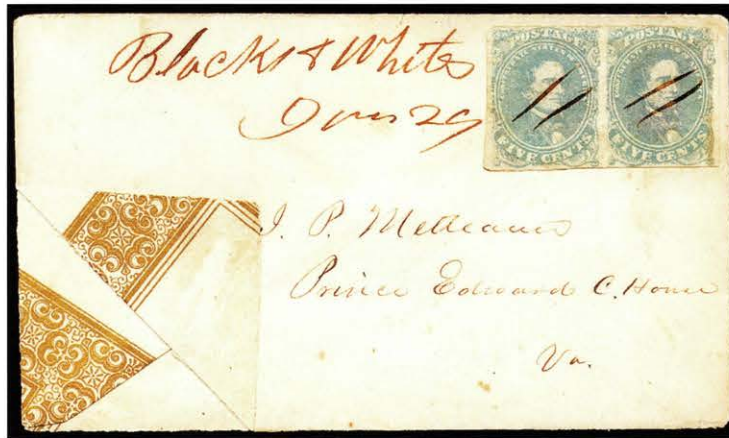 Blacks & Whites
June 29
POSTAGE
FIVE CENTS
POSTAGE
FIVE CENTS
J. P. Metteauer
Prince Edward C. House
Va.